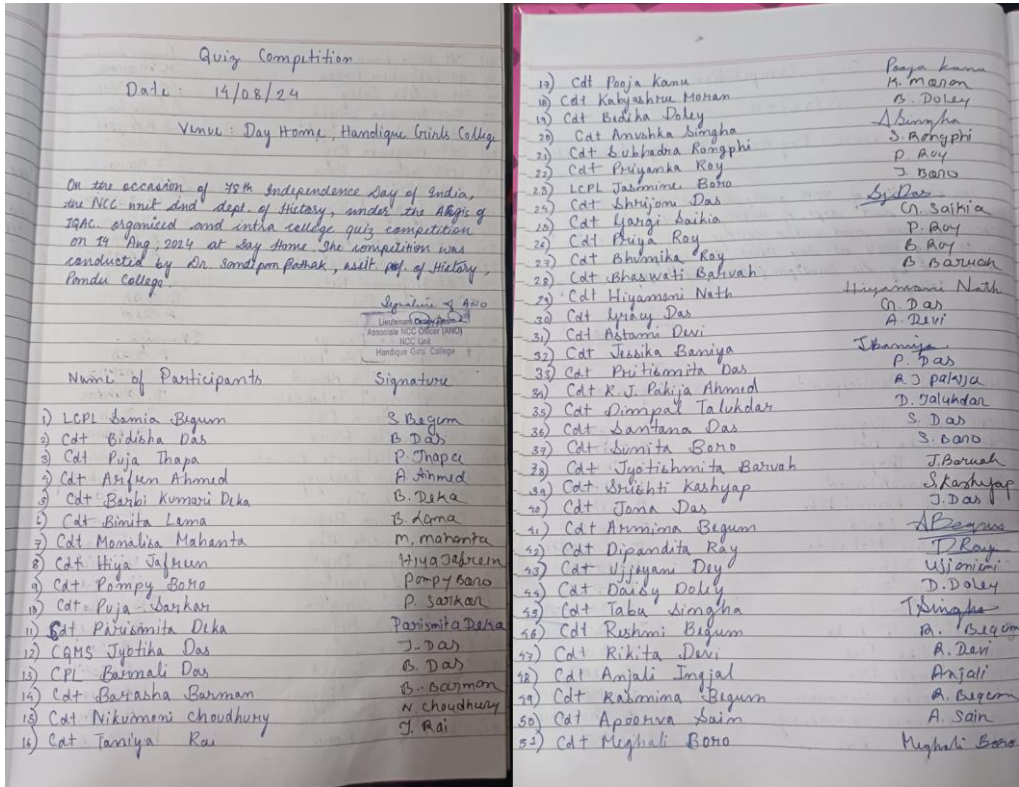 Quiz Competition
Date: 14/08/24
Venue: Day Home, Handique Girls College
On the occasion of 78th Independence Day of India,
the NCC unit and dept. of History, under the Aegis of
IQAC, organised and intra college quiz competition
on 14 Aug, 2024 at Day Home. The competition was
conducted by Dr. Sandipan Pathak, asst. prof. of History,
Pandu College.
Signature of ANO
Lieutenant
Associate NCC Officer (ANO)
NCC Unit
Handique Girls' College
Name of Participants Signature
1) LCPL Samia Begum S Begum
2) Cdt Bidisha Das B. Das
3) Cdt Puja Thapa P. Thapa
4) Cdt Arifun Ahmed A. Ahmed
5) Cdt Barbi Kumari Deka B. Deka
6) Cdt Binita Lama B. Lama
7) Cdt Monalisa Mahanta M. mahanta
8) Cdt Hiya Jafreen Hiya Jafreen
9) Cdt Pompy Boro Pompy Boro
10) Cdt Puja Sarkar P. Sarkar
11) Cdt Parismita Deka Parismita Deka
12) CQMS Jyotika Das J. Das
13) CPL Barmali Das B. Das
14) Cdt Barasha Barman B. Barman
15) Cdt Nikumoni Choudhury N. Choudhury
16) Cdt Taniya Rai T. Rai
17) Cdt Pooja Kanu Pooja Kanu
18) Cdt Kabyashree Moran K. Moran
19) Cdt Bidika Doley B. Doley
20) Cdt Anushka Singha A Singha
21) Cdt Subhadra Rongphi S. Rongphi
22) Cdt Priyanka Roy P. Roy
23) LCPL Jasmine Boro J. Boro
24) Cdt Shrijoni Das Sj. Das
25) Cdt Gargi Saikia G. Saikia
26) Cdt Priya Roy P. Roy
27) Cdt Bhumika Roy B. Roy
28) Cdt Bhaswati Baruah B Baruah
29) Cdt Hiyamoni Nath Hiyamoni Nath
30) Cdt Gracy Das G. Das
31) Cdt Astami Devi A. Devi
32) Cdt Jessika Baniya J Baniya
33) Cdt Pritismita Das P. Das
34) Cdt R.J. Pakija Ahmed R.J pakija
35) Cdt Dimpal Talukdar D. Talukdar
36) Cdt Santana Das S. Das
37) Cdt Sumita Boro S. Boro
38) Cdt Jyotishmita Baruah J. Baruah
39) Cdt Srishti Kashyap S. Kashyap
40) Cdt Jona Das J. Das
41) Cdt Armina Begum A Begum
42) Cdt Dipandita Ray D Ray
43) Cdt Ujjayani Dey
44) Cdt Daisy Doley D. Doley
45) Cdt Tabu Singha T Singha
46) Cdt Reshmi Begum R. Begum
47) Cdt Rikita Devi R. Devi
48) Cdt Anjali Ingjal Anjali
49) Cdt Rasmina Begum R. Begum
50) Cdt Apoorva Sain A. Sain
51) Cdt Meghali Boro Meghali Boro